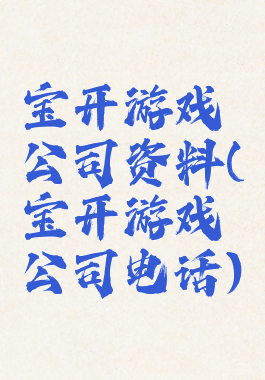 宝开游戏
公司资料(
宝开游戏
公司电话)